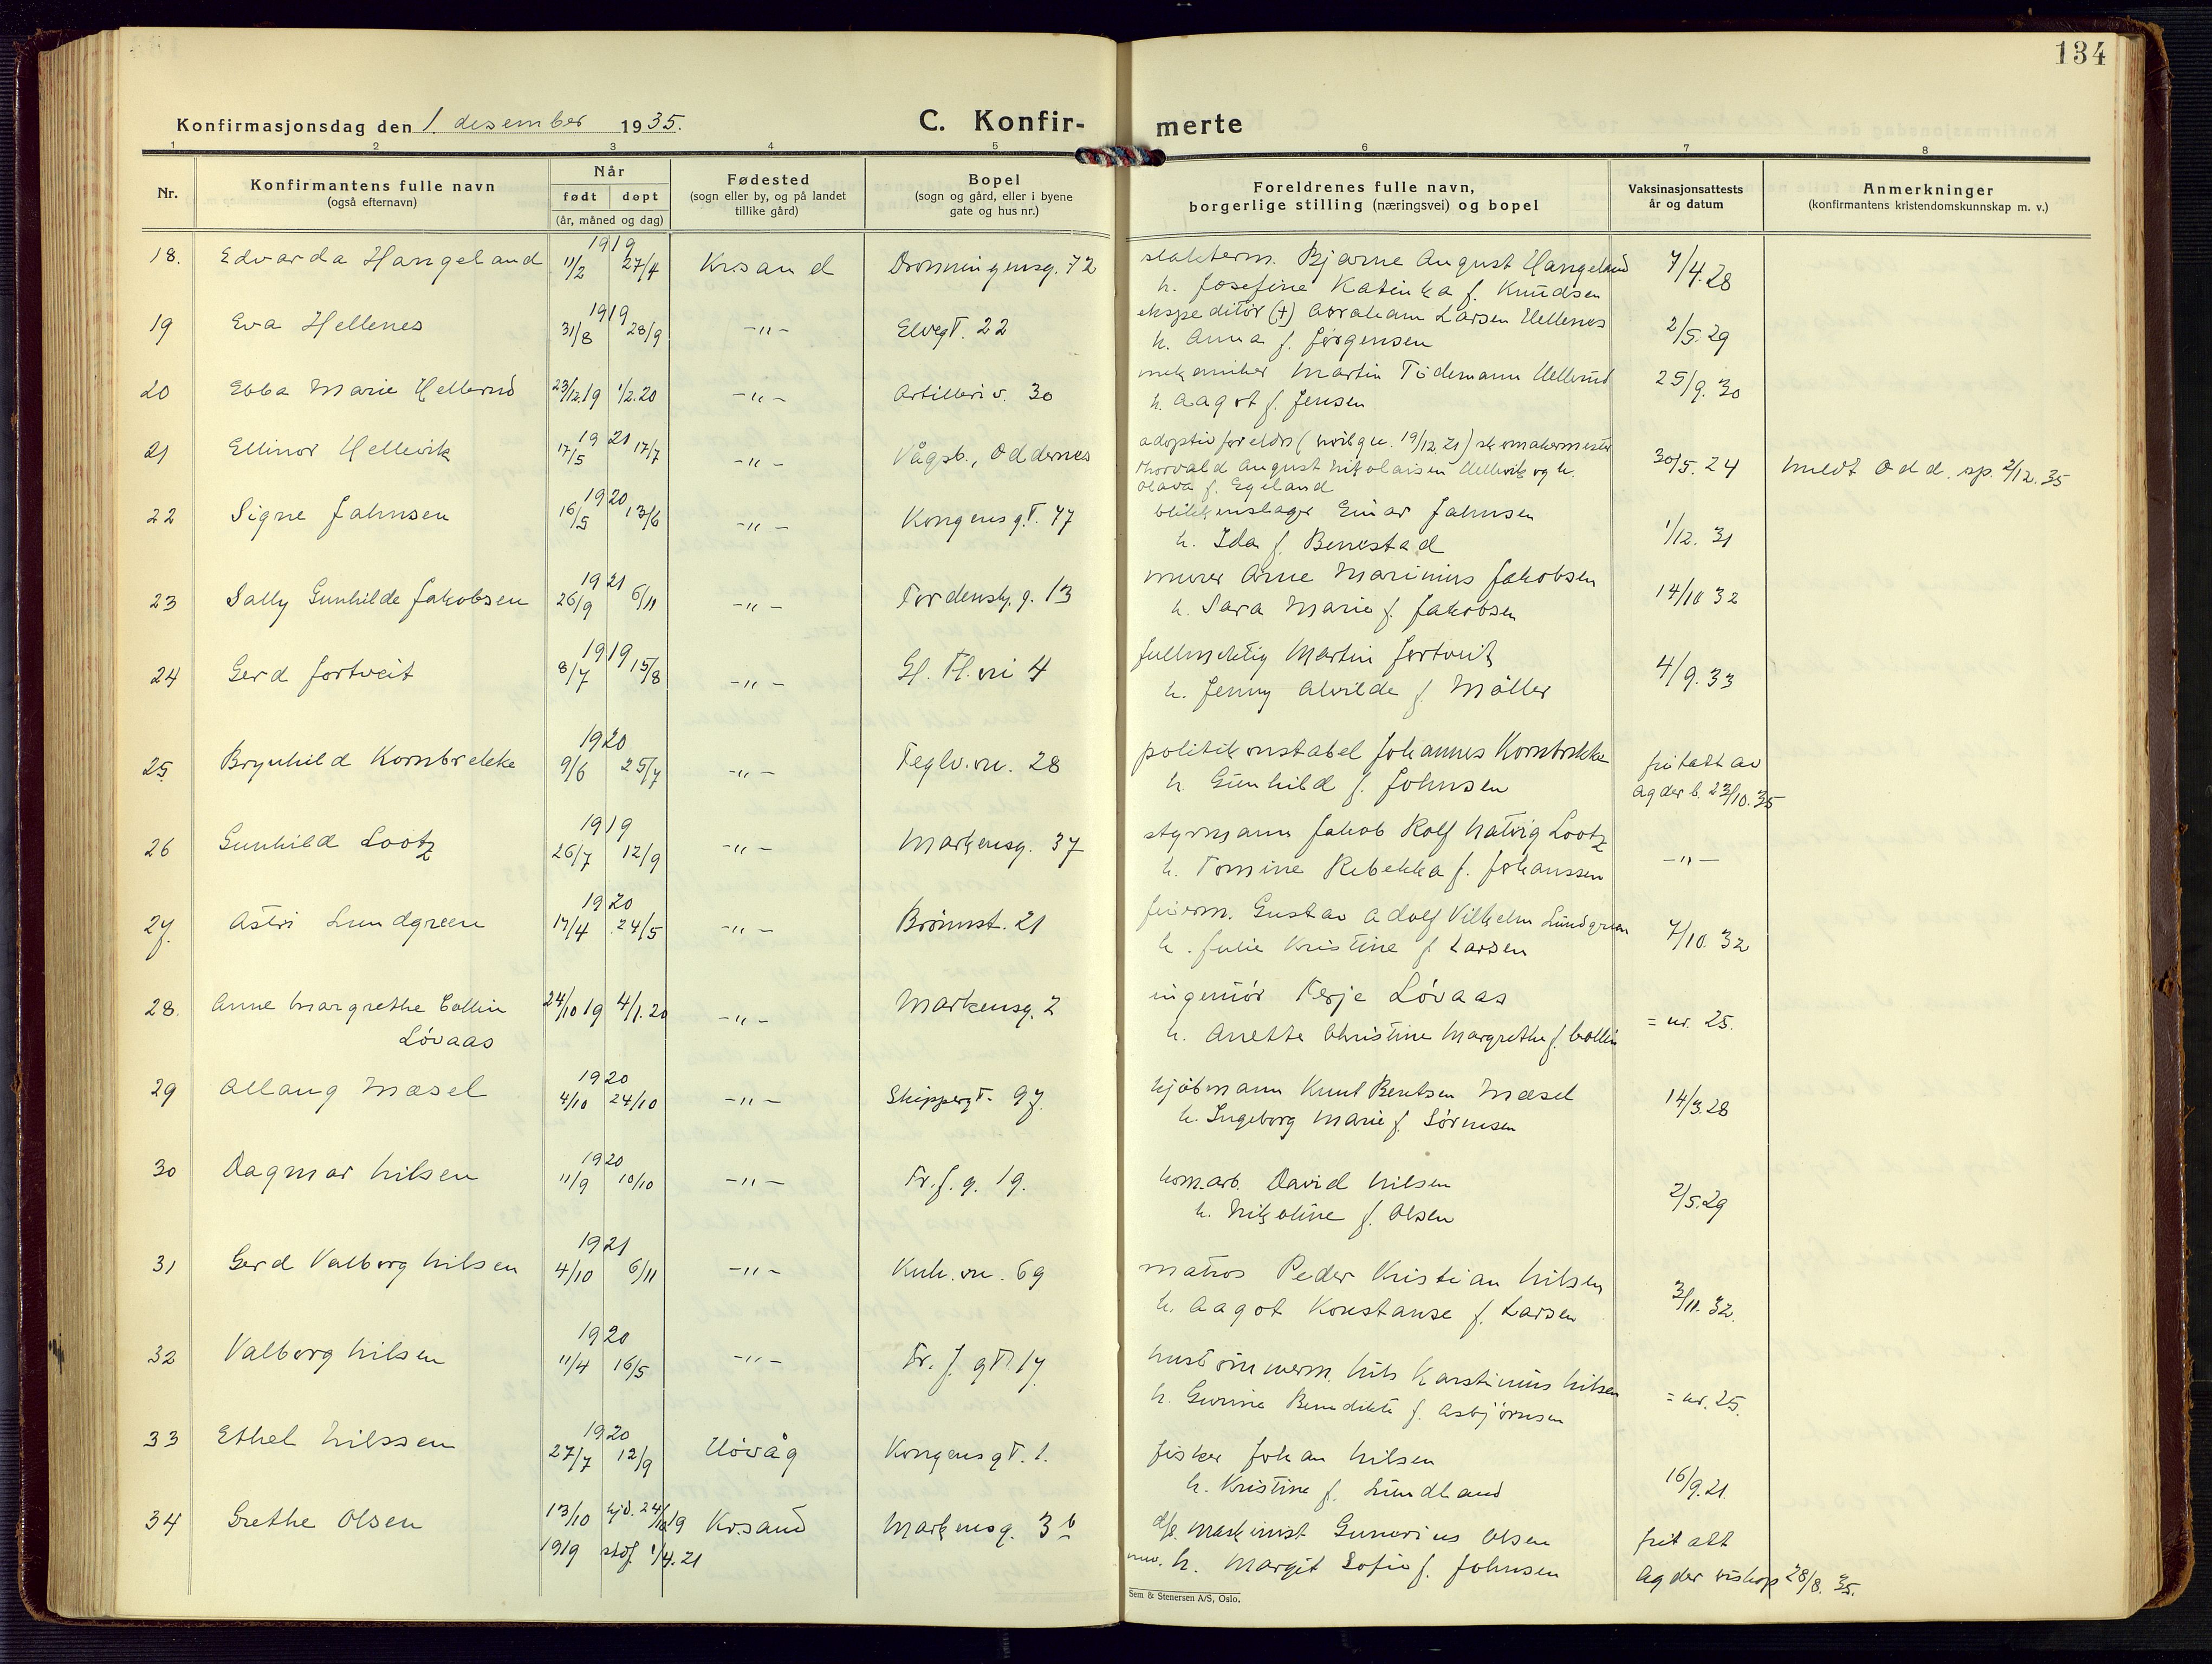 134
Konfirmasjonsdag den 1. desember 1935.
C. Konfir- merte
1 2 3 4 5 6 7 8
Nr.
Konfirmantens fulle navn
(også efternavn)
Når
født døpt
(år, måned og dag)
Fødested
(sogn eller by, og på landet
tillike gård)
Bopel
(sogn og gård, eller i byene
gate og hus nr.)
Foreldrenes fulle navn,
borgerlige stilling (næringsvei) og bopel
Vaksinasjonsattests
år og datum
Anmerkninger
(konfirmantens kristendomskunnskap m. v.)
18. Edvarda Hangeland 1919 11/2 27/4 Krsand Dronningensg. 72 slakterm. Bjarne August Hangeland 7/4.28
h. Josefine Katinka f. Knudsen
19 Eva Hellenes 1919 31/8 28/9 -"- Elvegt. 22 ekspeditør (+) Abraham Larsen Hellenes 2/5.29
h. Anna f. Jørgensen
20 Ebba Marie Hellerud 23/12.19 1/2.20 -"- Artilleriv. 30 mekaniker Martin Tidemann Hellerud 25/9.30
h. Aagot f. Jensen
21 Ellinor Hellevik 1921 17/5 17/7 -"- Vågsb., Oddernes adoptivforeldre ( 19/12.21) skomakermester
Thorvald August Nikolaisen Hellevik og h. 30/5.24 meldt Odd. sp. 2/12.35
Olava f. Egeland
22 Signe Jahnsen 1920 16/5 13/6 -"- Kongensgt. 47 blikkenslager Einar Jahnsen 1/12.31
h. Ida f. Benestad
23 Sally Gunhilde Jakobsen 1921 26/9 6/11 -"- Tordensk. g. 13 murer Arne Marinius Jakobsen 14/10 32
h. Sara Marie f. Jakobsen
24 Gerd Jortveit 1919 8/7 15/8 -"- Gl. Tl. vei 4 fullmektig Martin Jortveit 4/9.33
h. Jenny Alvilde f. Møller
25 Brynhild Kornbrekke 1920 9/6 25/7 -"- Teglv.vn. 28 politikonstabel Johannes Kornbrekke fritatt av
h. Gunhild f. Johnsen Agder b. 23/10.35
26 Gunhild Lootz 1919 26/7 12/9 -"- Markensg. 37 styrmann Jakob Rolf Natvig Lootz -"-
h. Tomine Rebekka f. Johanssen
27. Astri Lundgreen 1920 17/4 24/5 -"- Brønnst. 21 feierm. Gustav Adolf Vilhelm Lundgreen 7/10.32
h. Julie Kristine f. Larsen
28. Anne Margrethe Collin 24/10 19 4/1.20 -"- Markensg. 2 ingeniør Terje Løvaas = nr. 25.
Løvaas h. Anette Christine Margrethe f. Collin
29 Allaug Mæsel 1920 4/10 24/10 -"- Skippergt. 97. kjøbmann Knut Bentsen Mæsel 14/3.28
h. Ingeborg Marie f. Sørensen
30 Dagmar Nilsen 1920 11/9 10/10 -"- Tr. f. g. 19. kom.arb. David Nilsen 2/5.29
h. Nikoline f. Olsen
31 Gerd Valborg Nilsen 1921 4/10 6/11 -"- Kuh. vn. 69 matros Peder Kristian Nilsen 3/11.32.
h. Aagot Konstanse f. Larsen
32 Valborg Nilsen 1920 11/4 16/5 -"- Tr. f. gt. 17 hustømmerm. Nils Karstinius Nilsen = nr. 25.
h. Gurine Benedikte f. Asbjørnsen
33 Ethel Nilssen 1920 27/7 12/9 Høvåg Kongensgt. 1. fisker Johan Nilsen 16/9.21.
h. Kristine f. Lundland
34 Grethe Olsen 13/10 hjd. 24/10 19 Krsand Markensg. 3 b maskinist Gunerius Olsen fritatt
1919 stdf. 1/4.21 h. Margit Sofie f. Johnsen Agder biskop 28/8.35.
Sem & Stenersen A/S, Oslo.